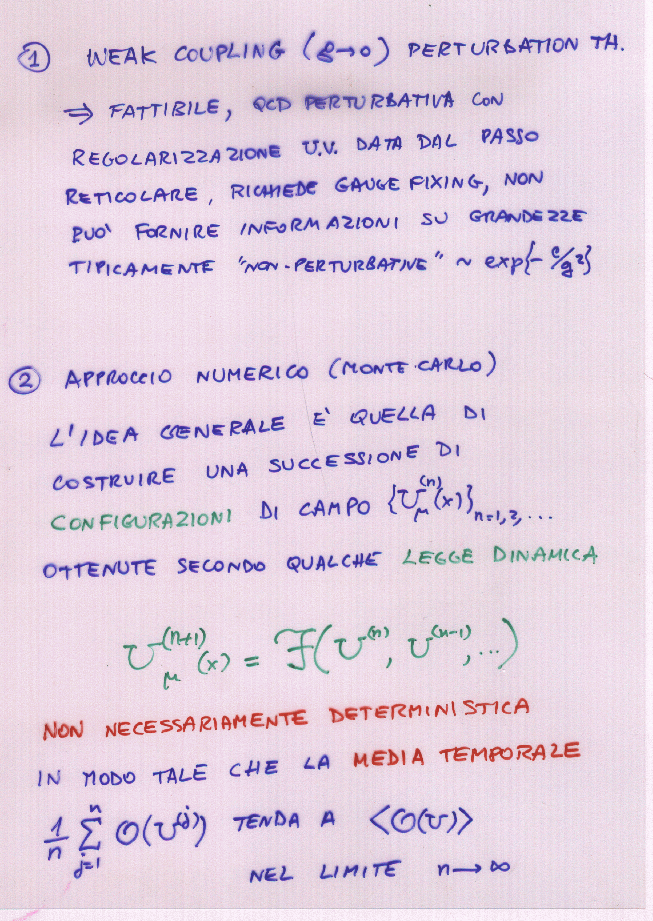 ① WEAK COUPLING (g→0) PERTURBATION TH.
⇒ FATTIBILE, QCD PERTURBATIVA CON
REGOLARIZZAZIONE U.V. DATA DAL PASSO
RETICOLARE, RICHIEDE GAUGE FIXING, NON
PUO' FORNIRE INFORMAZIONI SU GRANDEZZE
TIPICAMENTE "NON-PERTURBATIVE" ~ exp{-c/g²}
② APPROCCIO NUMERICO (MONTE-CARLO)
L'IDEA GENERALE E' QUELLA DI
COSTRUIRE UNA SUCCESSIONE DI
CONFIGURAZIONI DI CAMPO {U_μ^(n)(x)}_n=1,2,...
OTTENUTE SECONDO QUALCHE LEGGE DINAMICA
U_μ^(n+1)(x) = F(U^(n), U^(n-1), ...)
NON NECESSARIAMENTE DETERMINISTICA
IN MODO TALE CHE LA MEDIA TEMPORALE
1/n Σ_{j=1}^n O(U^(j)) TENDA A <O(U)>
NEL LIMITE n→∞